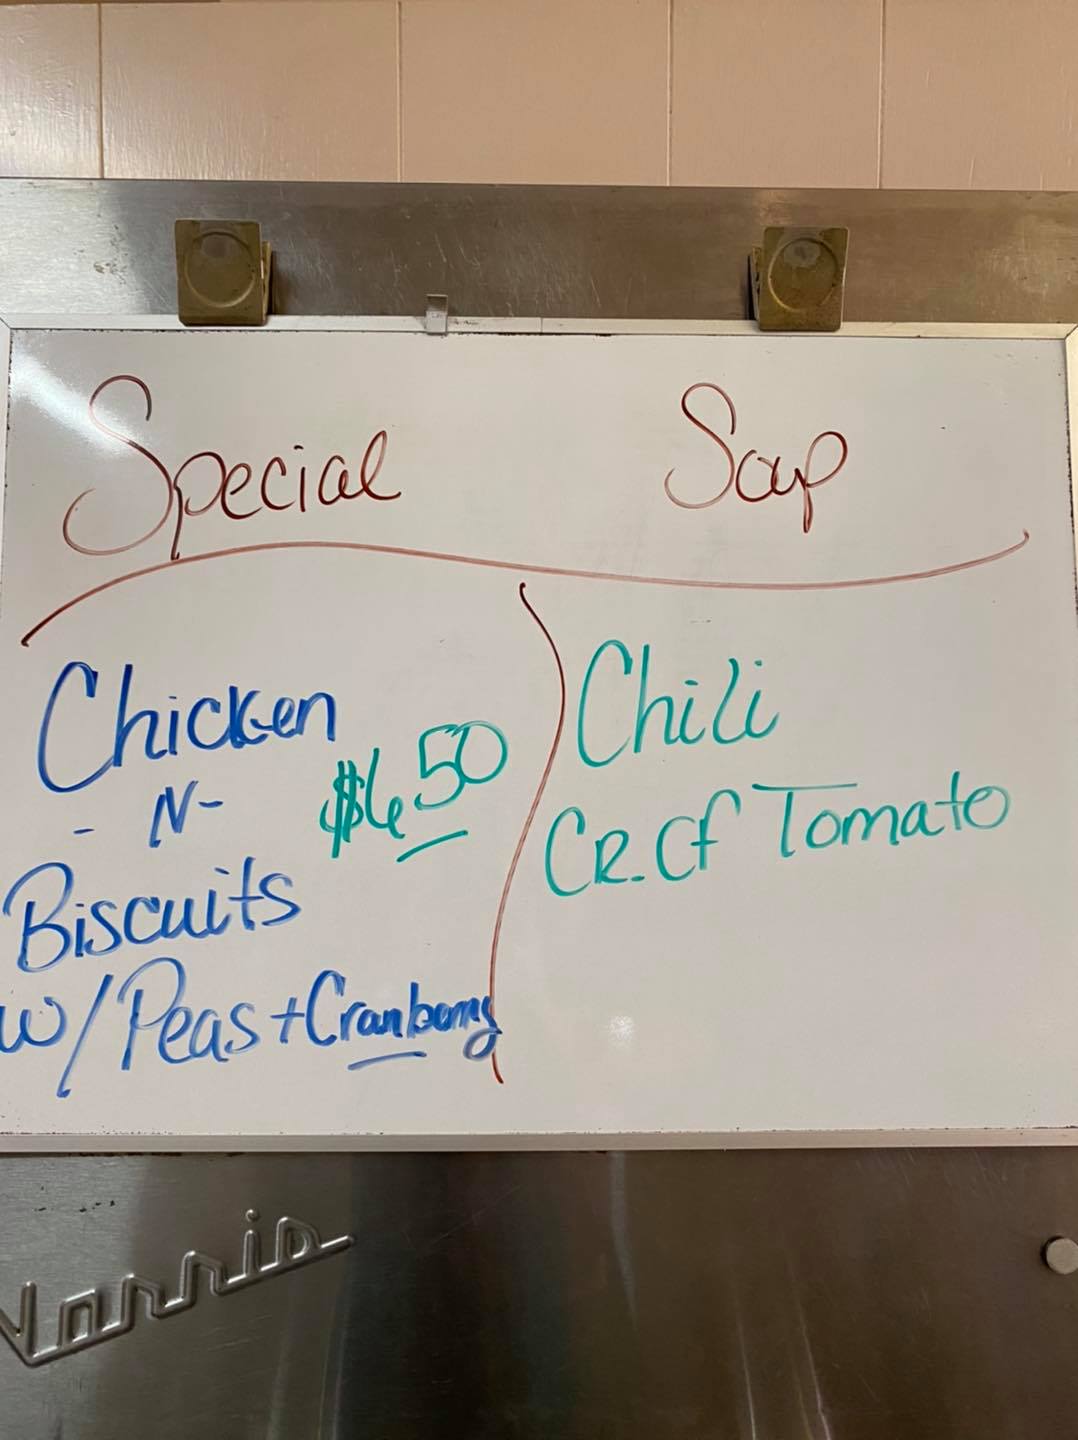 Special
Soup
Chicken
- N-
$6.50
Biscuits
w/Peas + Cranberry
Chili
CR. Of Tomato
Norris